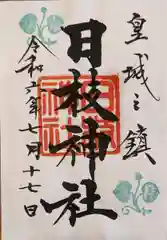 皇城之鎮
日枝神社
令和六年七月十七日